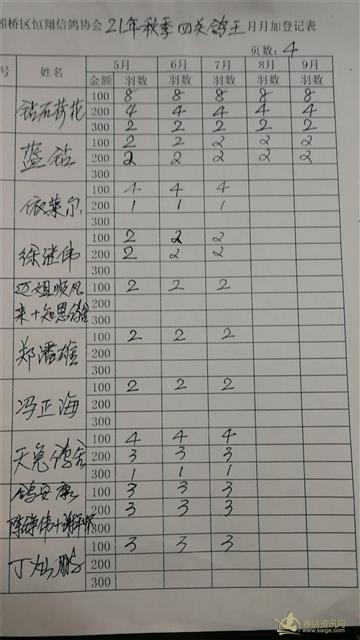 湘桥区恒翔信鸽协会 21年秋季四关鸽王月月加登记表
页数: 4
号 姓名 5月 6月 7月 8月 9月
金额 羽数 羽数 羽数 羽数 羽数
钻石荷花 100 8 8 8 8 8
200 4 4 4 4 4
300 2 2 2 2 2
蓝钻 100 2 2 2 2 2
200 2 2 2 2 2
300
依莱尔 100 4 4 4
200 1 1 1
300
徐继伟 100 2 2 2
200 2 2 2
300
迈姐顺风 100 2 2 2
来+知恩鸽舍 200
300
郑潘雄 100 2 2 2
200
300
冯正海 100 2 2 2
200
300
天兔鸽舍 100 4 4 4
200 3 3 3
300 1 1 1
鸽安康 100 3 3 3
200 3 3 3
300
丁灿鹏 100 3 3 3
200
300
赛鸽资讯网
www.saige.com